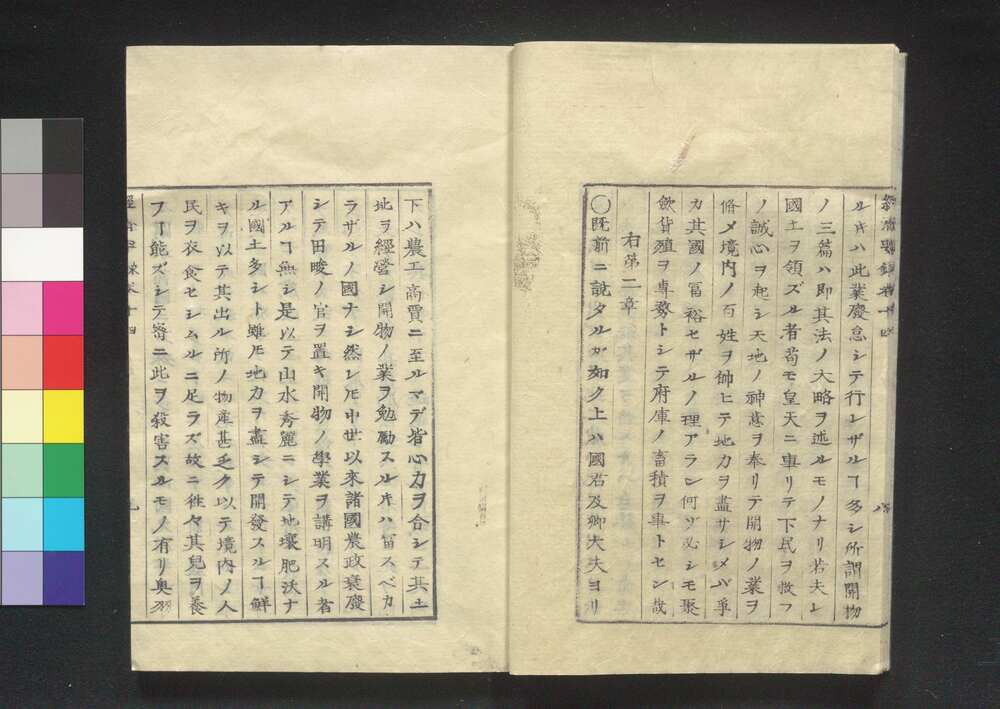 ルㇳキハ此業廢怠シテ行レザルヿ多シ所謂開物
ノ三篇ハ即其法ノ大略ヲ述ルモノナリ若夫レ
國土ヲ領ズル者苟モ皇天ニ事リテ下民ヲ救フ
ノ誠心ヲ起シ天地ノ神意ヲ奉リテ開物ノ業ヲ
脩メ境内ノ百姓ヲ帥ヒテ地力ヲ盡サシメバ爭
カ其國ノ冨裕セザルノ理アラン何ゾ必シモ聚
歛貨殖ヲ専務トシテ府庫ノ畜積ヲ事トセン哉
右第二章
◯既前ニ説タルガ如ク上ハ國君及卿大夫ヨリ
下ハ農工商賈ニ至ルマデ皆心力ヲ合シテ其土
地ヲ經營シ開物ノ業ヲ勉勵スルㇳキハ冨スベカ
ラザルノ國ナシ然シㇳモ中世以來諸國農政衰廢
シテ田畯ノ官ヲ置キ開物ノ學業ヲ講明スル者
アルヿ無シ是以テ山水秀麗ニシテ地壤肥沃ナ
ル國土多シト雖ㇳモ地力ヲ盡シテ開發スルヿ鮮
キヲ以テ其出ル所ノ物産甚乏ク以テ境内ノ人
民ヲ衣食セシムルニ足ラズ故ニ徃々其兒ヲ養
フヿ能ズシテ窃ニ此ヲ殺害スルモノ有リ奥羽